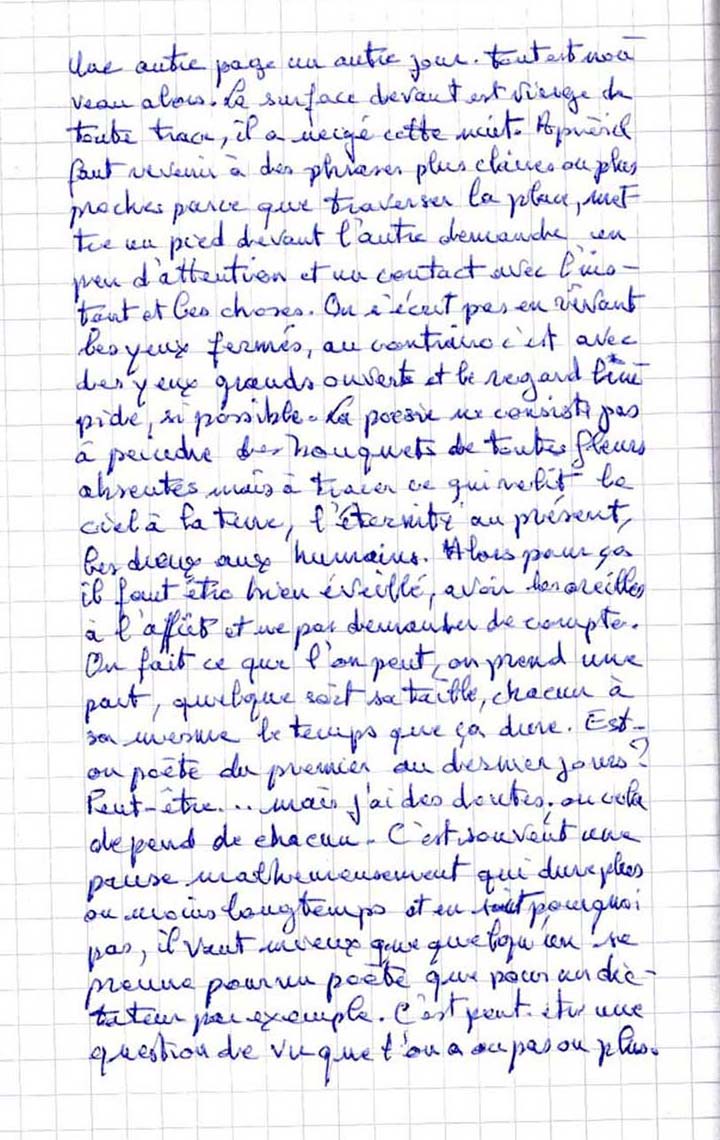 Une autre page un autre jour. Tout est nou
veau alors. La surface devant est vierge de
toute trace, il a neigé cette nuit. Après il
faut revenir à des phrases plus claires ou plus
proches parce que traverser la place, met
tre un pied devant l'autre demande un
peu d'attention et un contact avec l'ins-
tant et les choses. On n'écrit pas en rêvant
les yeux fermés, au contraire c'est avec
des yeux grands ouverts et le regard lim
pide, si possible. La poésie ne consiste pas
à peindre des bouquets de toutes fleurs
absentes mais à tracer ce qui relie le
ciel à la terre, l'éternité au présent,
les dieux aux humains. Alors pour ça
il faut être bien éveillé, avoir les oreilles
à l'affût et ne pas demander de compte.
On fait ce que l'on peut, on prend une
part, quelque soit sa taille, chacun à
sa mesure le temps que ça dure. Est-
on poète du premier au dernier jours?
Peut-être... mais j'ai des doutes, ou cela
dépend de chacun. C'est souvent une
pause malheureusement qui dure plus
ou moins longtemps et en pourquoi
pas, il vaut mieux que quelqu'un se
prenne pour un poète que pour un dic-
tateur par exemple. C'est peut-être une
question de vu que l'on a ou pas ou plus.